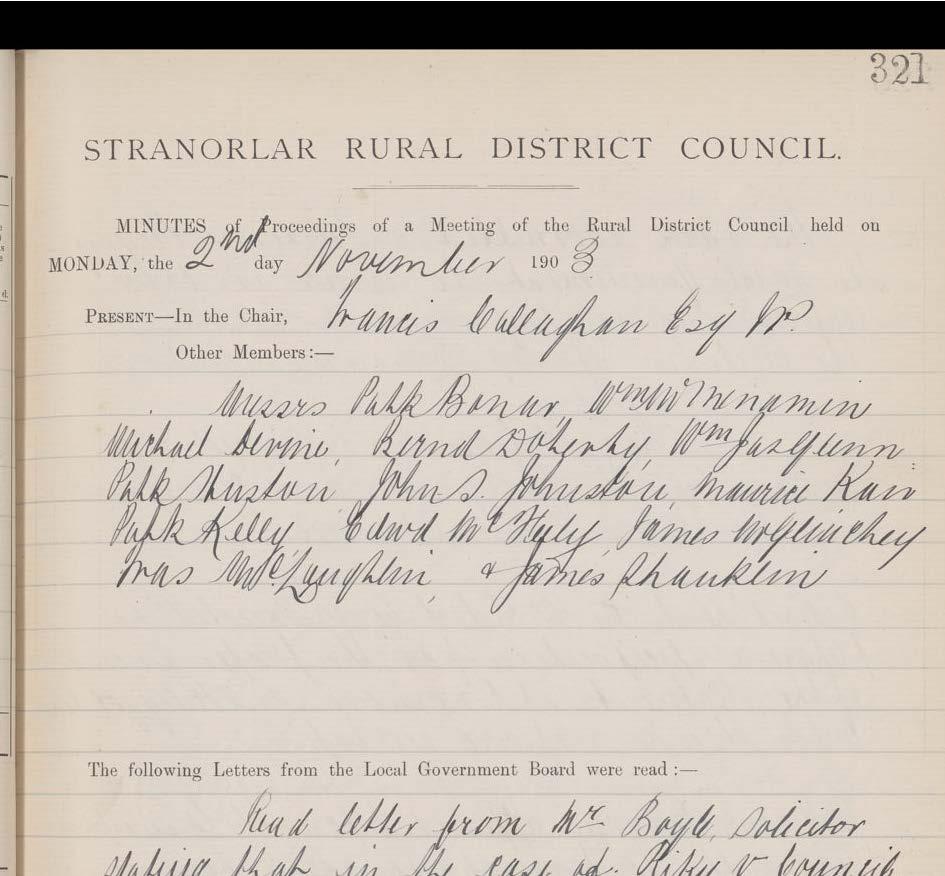 321
STRANORLAR RURAL DISTRICT COUNCIL.
MINUTES of Proceedings of a Meeting of the Rural District Council held on
MONDAY, the 2nd day November 1903
PRESENT—In the Chair, Francis Callaghan Esq JP.
Other Members:—
Messrs Patk Bonar, Wm McMenamin
Michael Devine, Bernd Doherty, Wm Jas
Patk Huston John S. Johnston, Maurice
Patk Kelly Edwd James McGlinchey
Fras McLaughlin, & James Shanklin
The following Letters from the Local Government Board were read:—
Read letter from Mr Boyle, Solicitor
stating that in the case of v Council